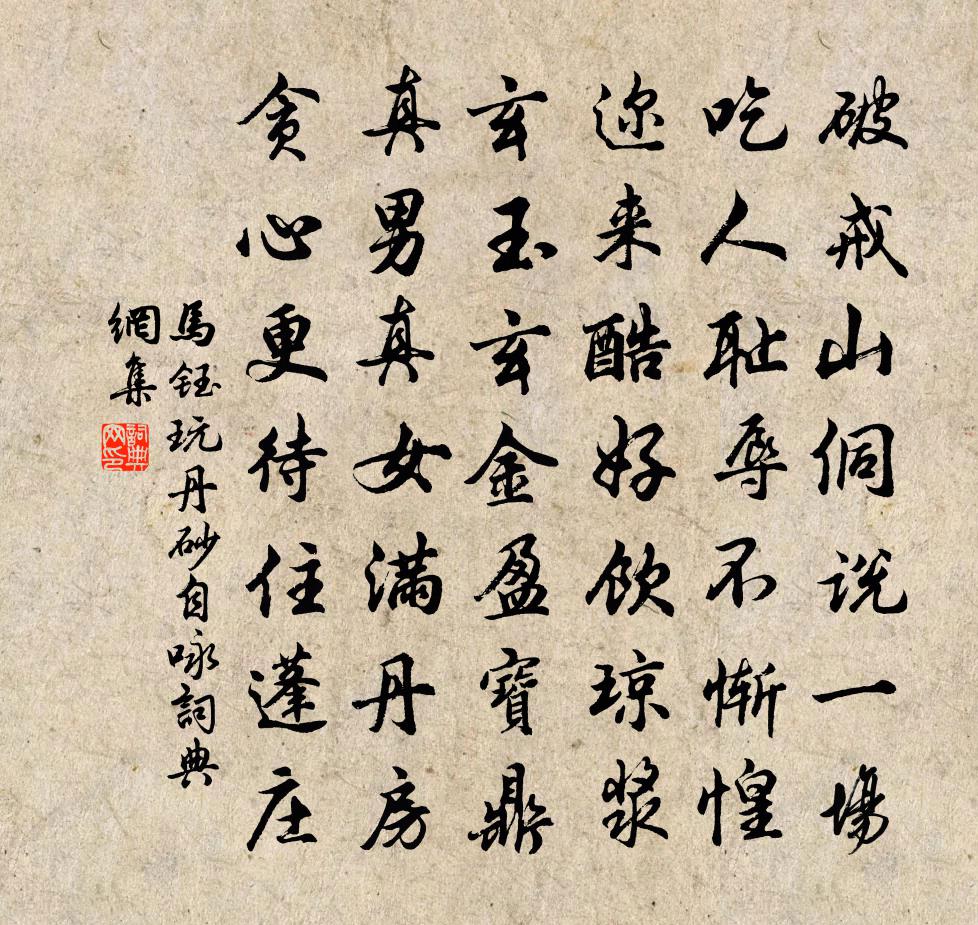 破戒山侗说一場
吃人耻辱不惭惶
迩来酷好饮琼浆
玄玉玄金盈寶鼎
真男真女满丹房
贪心更待住蓬庄
馬钰玩丹砂自咏詞典
網集
詞典網印